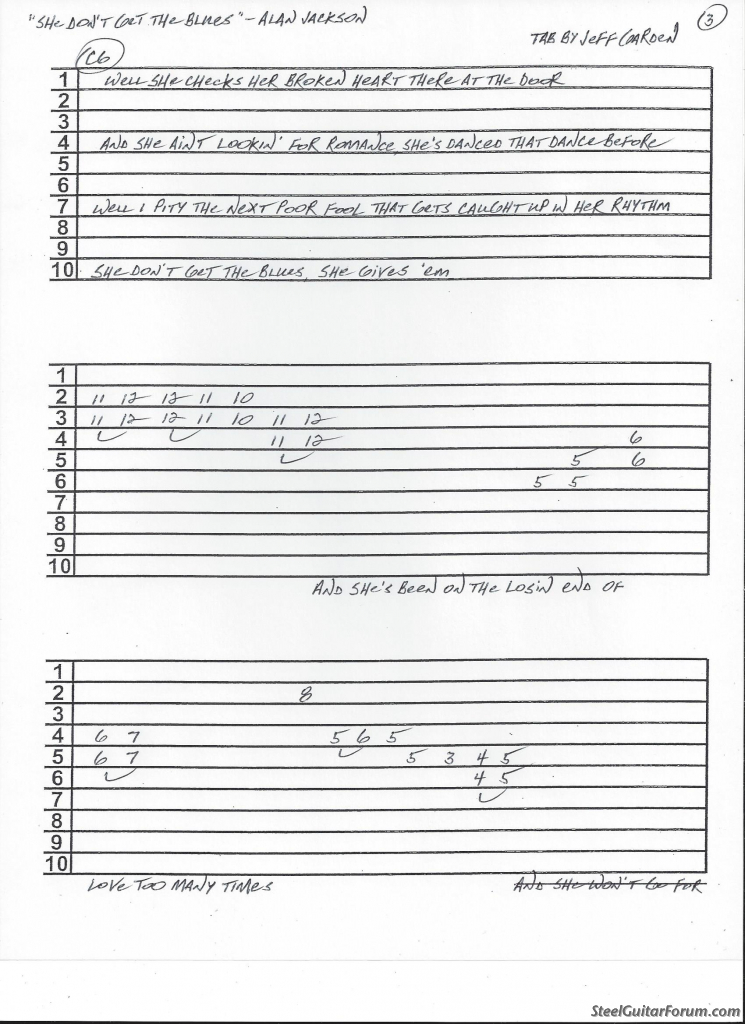 "SHE DON'T GET THE BLUES" - ALAN JACKSON
3
TAB BY JEFF GARDEN
C6
1 WELL SHE CHECKS HER BROKEN HEART THERE AT THE DOOR
2
3
4 AND SHE AIN'T LOOKIN' FOR ROMANCE, SHE'S DANCED THAT DANCE BEFORE
5
6
7 WELL I PITY THE NEXT POOR FOOL THAT GETS CAUGHT UP IN HER RHYTHM
8
9
10 SHE DON'T GET THE BLUES, SHE GIVES 'EM
1
2 11 12 12 11 10
3 11 12 12 11 10 11 12
4 11 12 6
5 5 6
6 5 5
7
8
9
10
AND SHE'S BEEN ON THE LOSIN END OF
1
2 8
3
4 6 7 5 6 5
5 6 7 5 3 4 5
6 4 5
7
8
9
10
LOVE TOO MANY TIMES AND SHE WON'T GO FOR
SteelGuitarForum.com